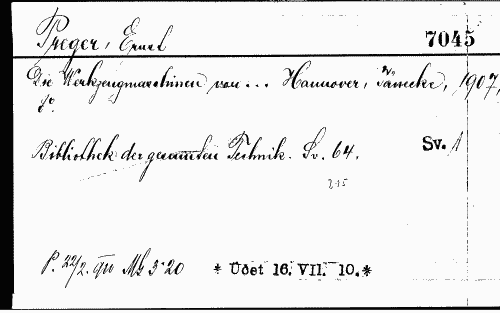 Preger, Ernst
7045
Die Werkzeugmaschinen von ... Hannover, Jänecke, 1907,
8°.
Bibliothek der gesamten Technik. Sv. 64.
Sv. 1
P. 22/2. Mk 3·20 * Účet 16. VII. 10.*